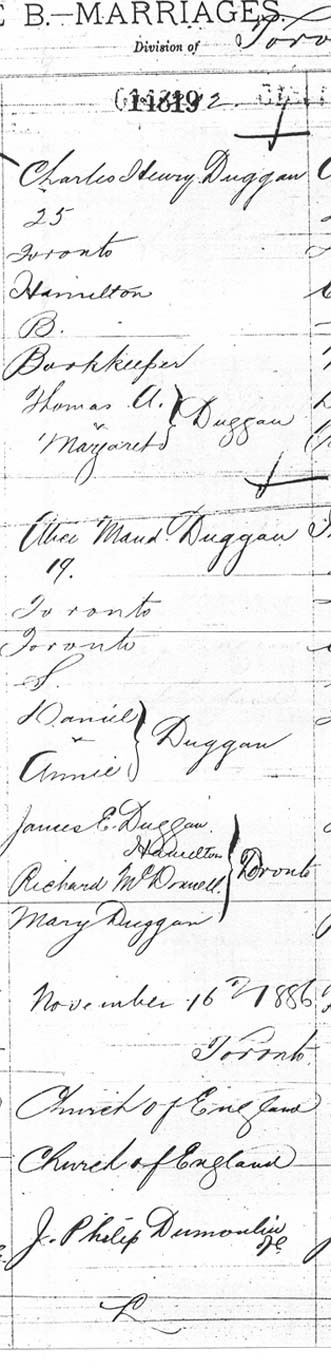 E B.—MARRIAGES.
Division of Toro
Charles Henry Duggan
25
Toronto
Hamilton
B.
Bookkeeper
Thomas A.
Duggan
Margaret
Alice Maud Duggan
19.
Toronto
Toronto
S.
Daniel
Duggan
Annie
James E. Duggan
Hamilton
Richard McDonnell.
Toronto
Mary Duggan
November 16th 1886
Toronto
Church of England
Church of England
J. Philip Dumoulin
L